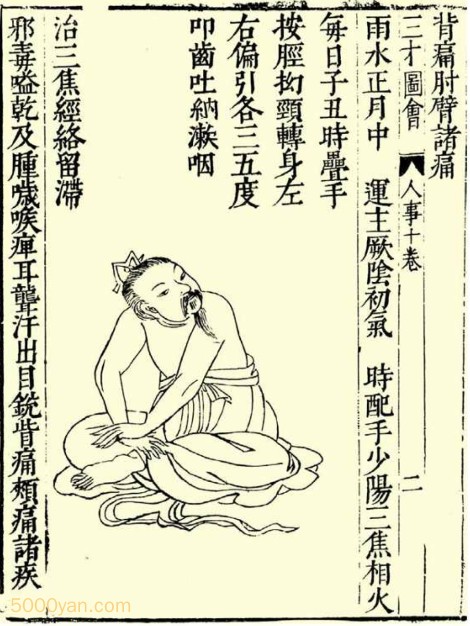 背痛肘臂諸痛
三才圖會 人事十卷 二
雨水正月中 運主厥陰初氣 時配手少陽三焦相火
每日子丑時疊手
按脛拗頸轉身左
右偏引各三五度
叩齒吐納漱咽
治三焦經絡留滯
邪毒嗌乾及腫噦喉痺耳聾汗出目銳眥痛頰痛諸疾
5000yan.com